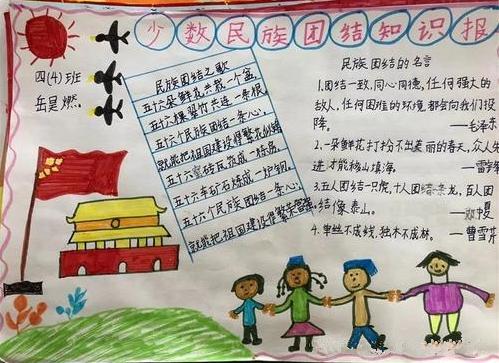 少数民族团结知识报
四(4)班
岳昊燃.
民族团结之歌
五十六朵鲜花共栽一个盆,
五十六棵翠竹共连一条根
五十六个民族团结一条心,
就能把祖国建设得繁花似锦
五十六
砖瓦筑成一栋房,
五十六车矿石炼成一炉钢,
五十六个民族团结一条心,
就能把祖国建设得繁荣富强
民族团结的名言
1.团结一致,同心同德,任何强大的
敌人,任何困难的环境,都会向我们投
降。
——毛泽东
2.一朵鲜花打扮不出美丽的春天,众人先
进才能移山填海。
——雷锋
3.五人团结一只虎,十人团结一条龙,百人团
结像泰山。
——邓中夏
4.单丝不成线,独木不成林。
——曹雪芹